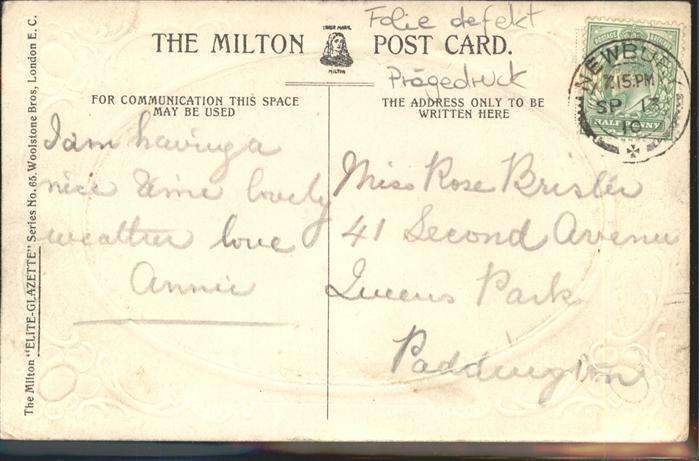 THE MILTON POST CARD.
TRADE MARK
MILTON
Folie defekt
Prägedruck
FOR COMMUNICATION THIS SPACE
MAY BE USED
THE ADDRESS ONLY TO BE
WRITTEN HERE
I am having a
nice time lovely
weather love
Annie
Miss Rose Brisler
41 Second Avenue
Queens Park
Paddington
NEWBURY
7.15 PM
SP 13
10
HALF PENNY
The Milton "ELITE-GLAZETTE" Series No. 65. Woolstone Bros, London E. C.